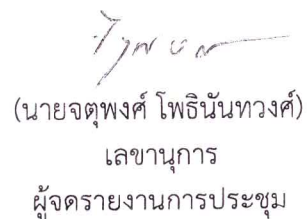 (นายจตุพงศ์ โพธินันทวงศ์)
เลขานุการ
ผู้จดรายงานการประชุม